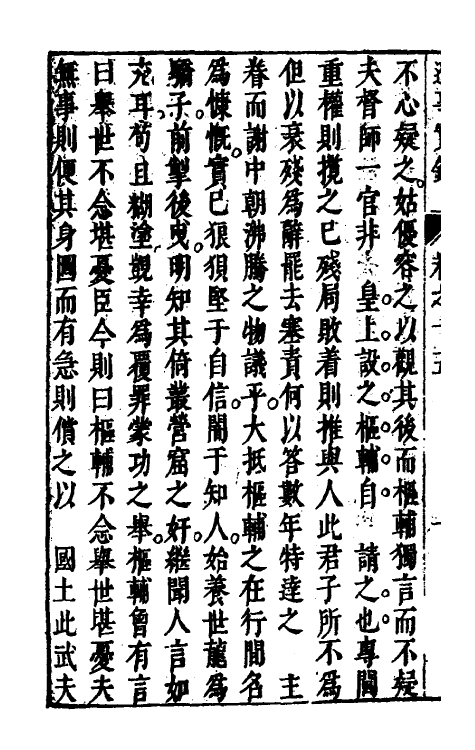 不心疑之姑優容之以觀其後而樞輔獨言而不疑
夫督師一官非　皇上設之樞輔自　請之也專閫
重權則攬之已殘局敗着則推與人此君子所不為
但以衰殘為辭罷去塞責何以答數年特達之　主
眷而謝中朝沸騰之物議乎大抵樞輔之在行間名
為慷慨實已狼狽堅于自信闇于知人始養世龍為
驕子前掣後曳明知其倚叢營窟之奸繼聞人言如
充耳苟且糊塗覬幸為覆罪蒙功之舉樞輔曾有言
曰舉世不念堪憂臣今則曰樞輔不念舉世堪憂夫
無事則便其身圖而有急則償之以　國土此武夫